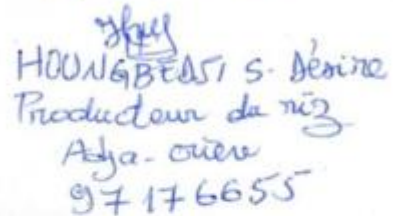 HOUNGBEDSI S. Désiré
Producteur de riz
Adja-ouère
97176655